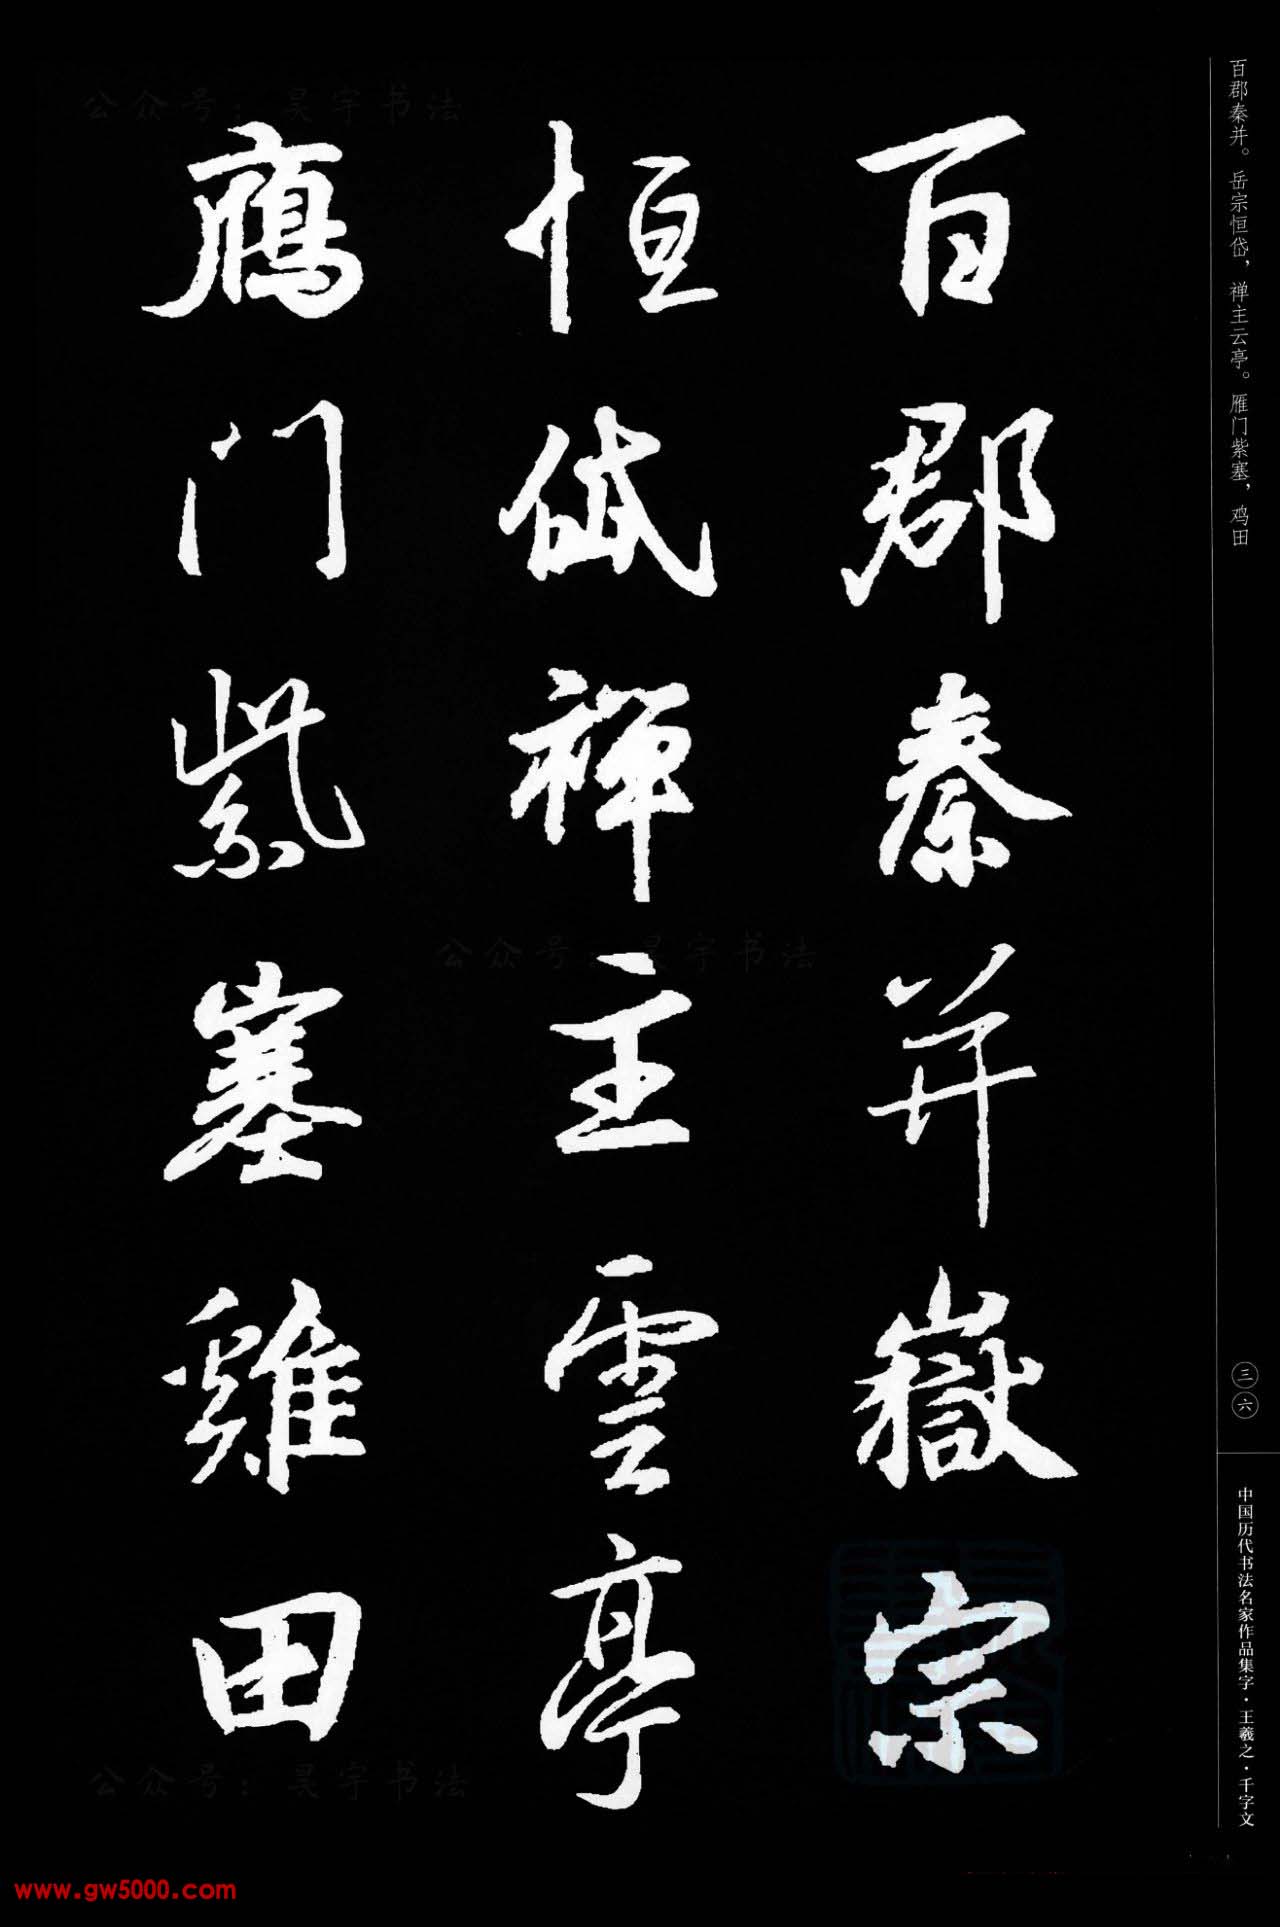 百郡秦并嶽宗
恒岱禅主雲亭
鴈门紫塞雞田
百郡秦并。岳宗恒岱，禅主云亭。雁门紫塞，鸡田
三六
中国历代书法名家作品集字·王羲之·千字文
公众号：昊宇书法
公众号：昊宇书法
公众号：昊宇书法
www.gw5000.com